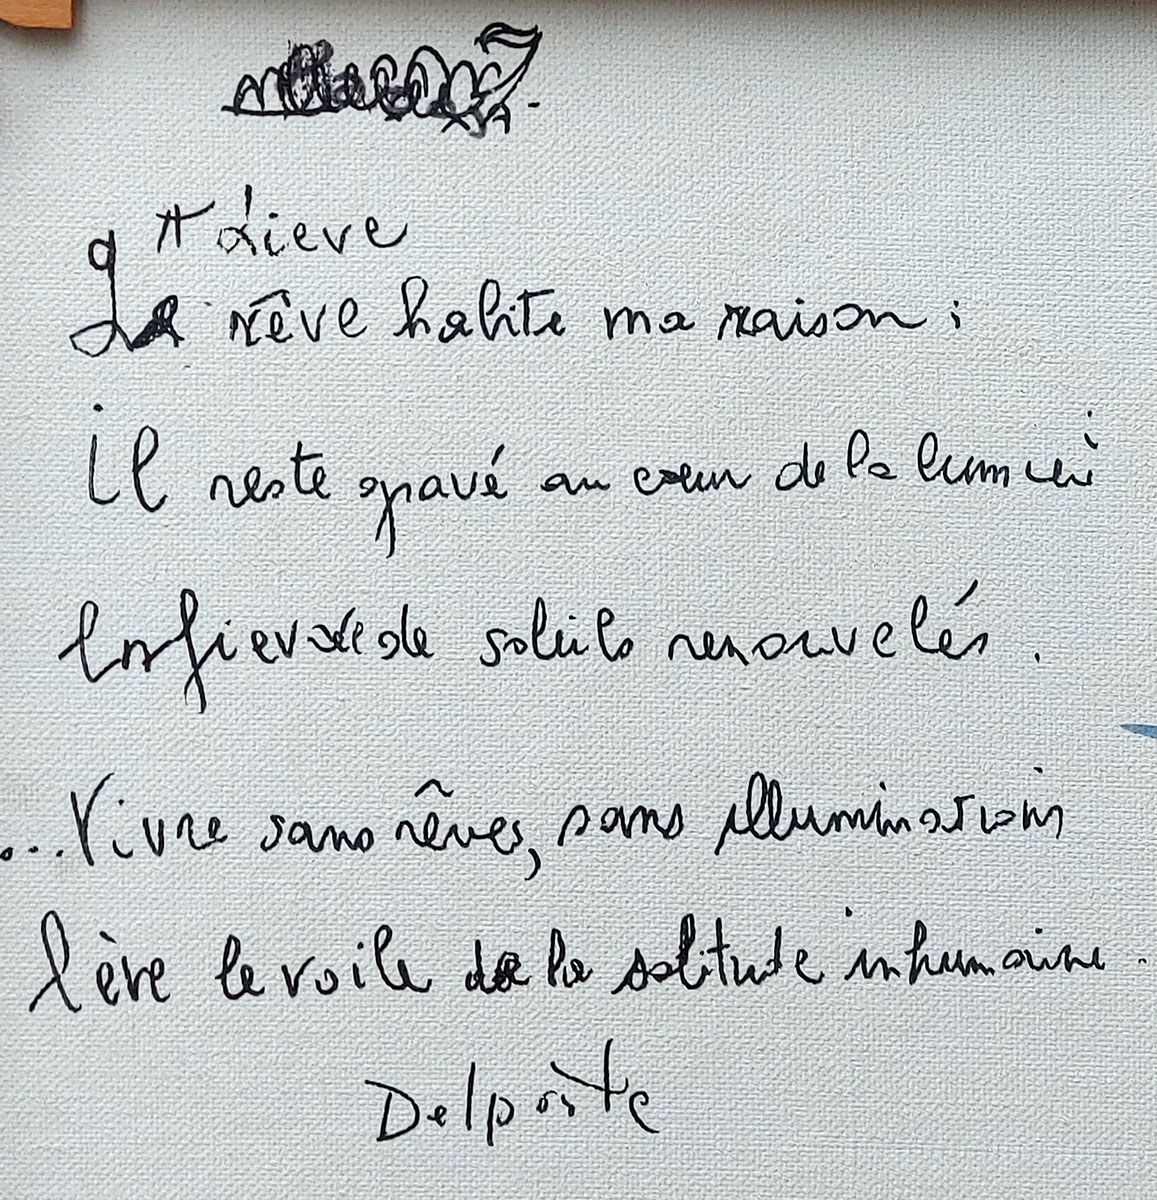 Lieve
Le rêve habite ma raison :
il reste gravé au cœur de la lumière
Enfievrée de soleils renouvelés.
... Vivre sans rêves, sans illuminations
lève le voile de la solitude inhumaine.
Delporte